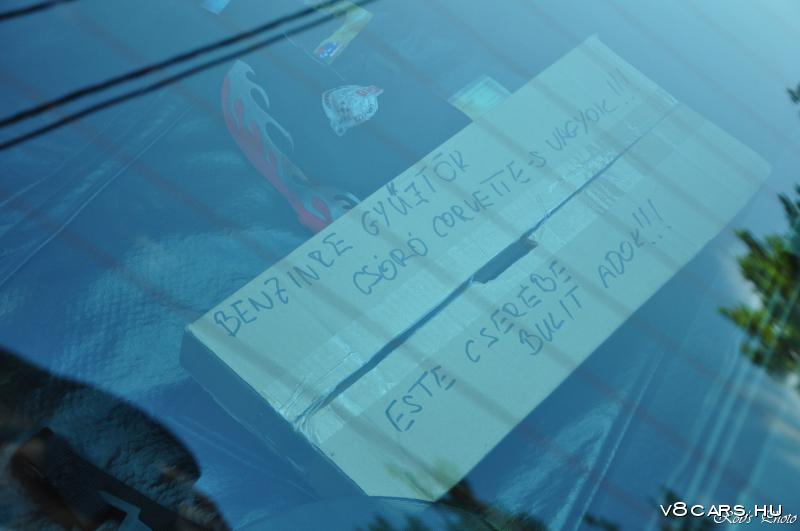 BENZINRE GYŰJTÖK
CSÓRÓ CORVETTE-S VAGYOK!!!
ESTE CSERÉBE
BULIT ADOK!!!
V8CARS.HU
Rob's Photo